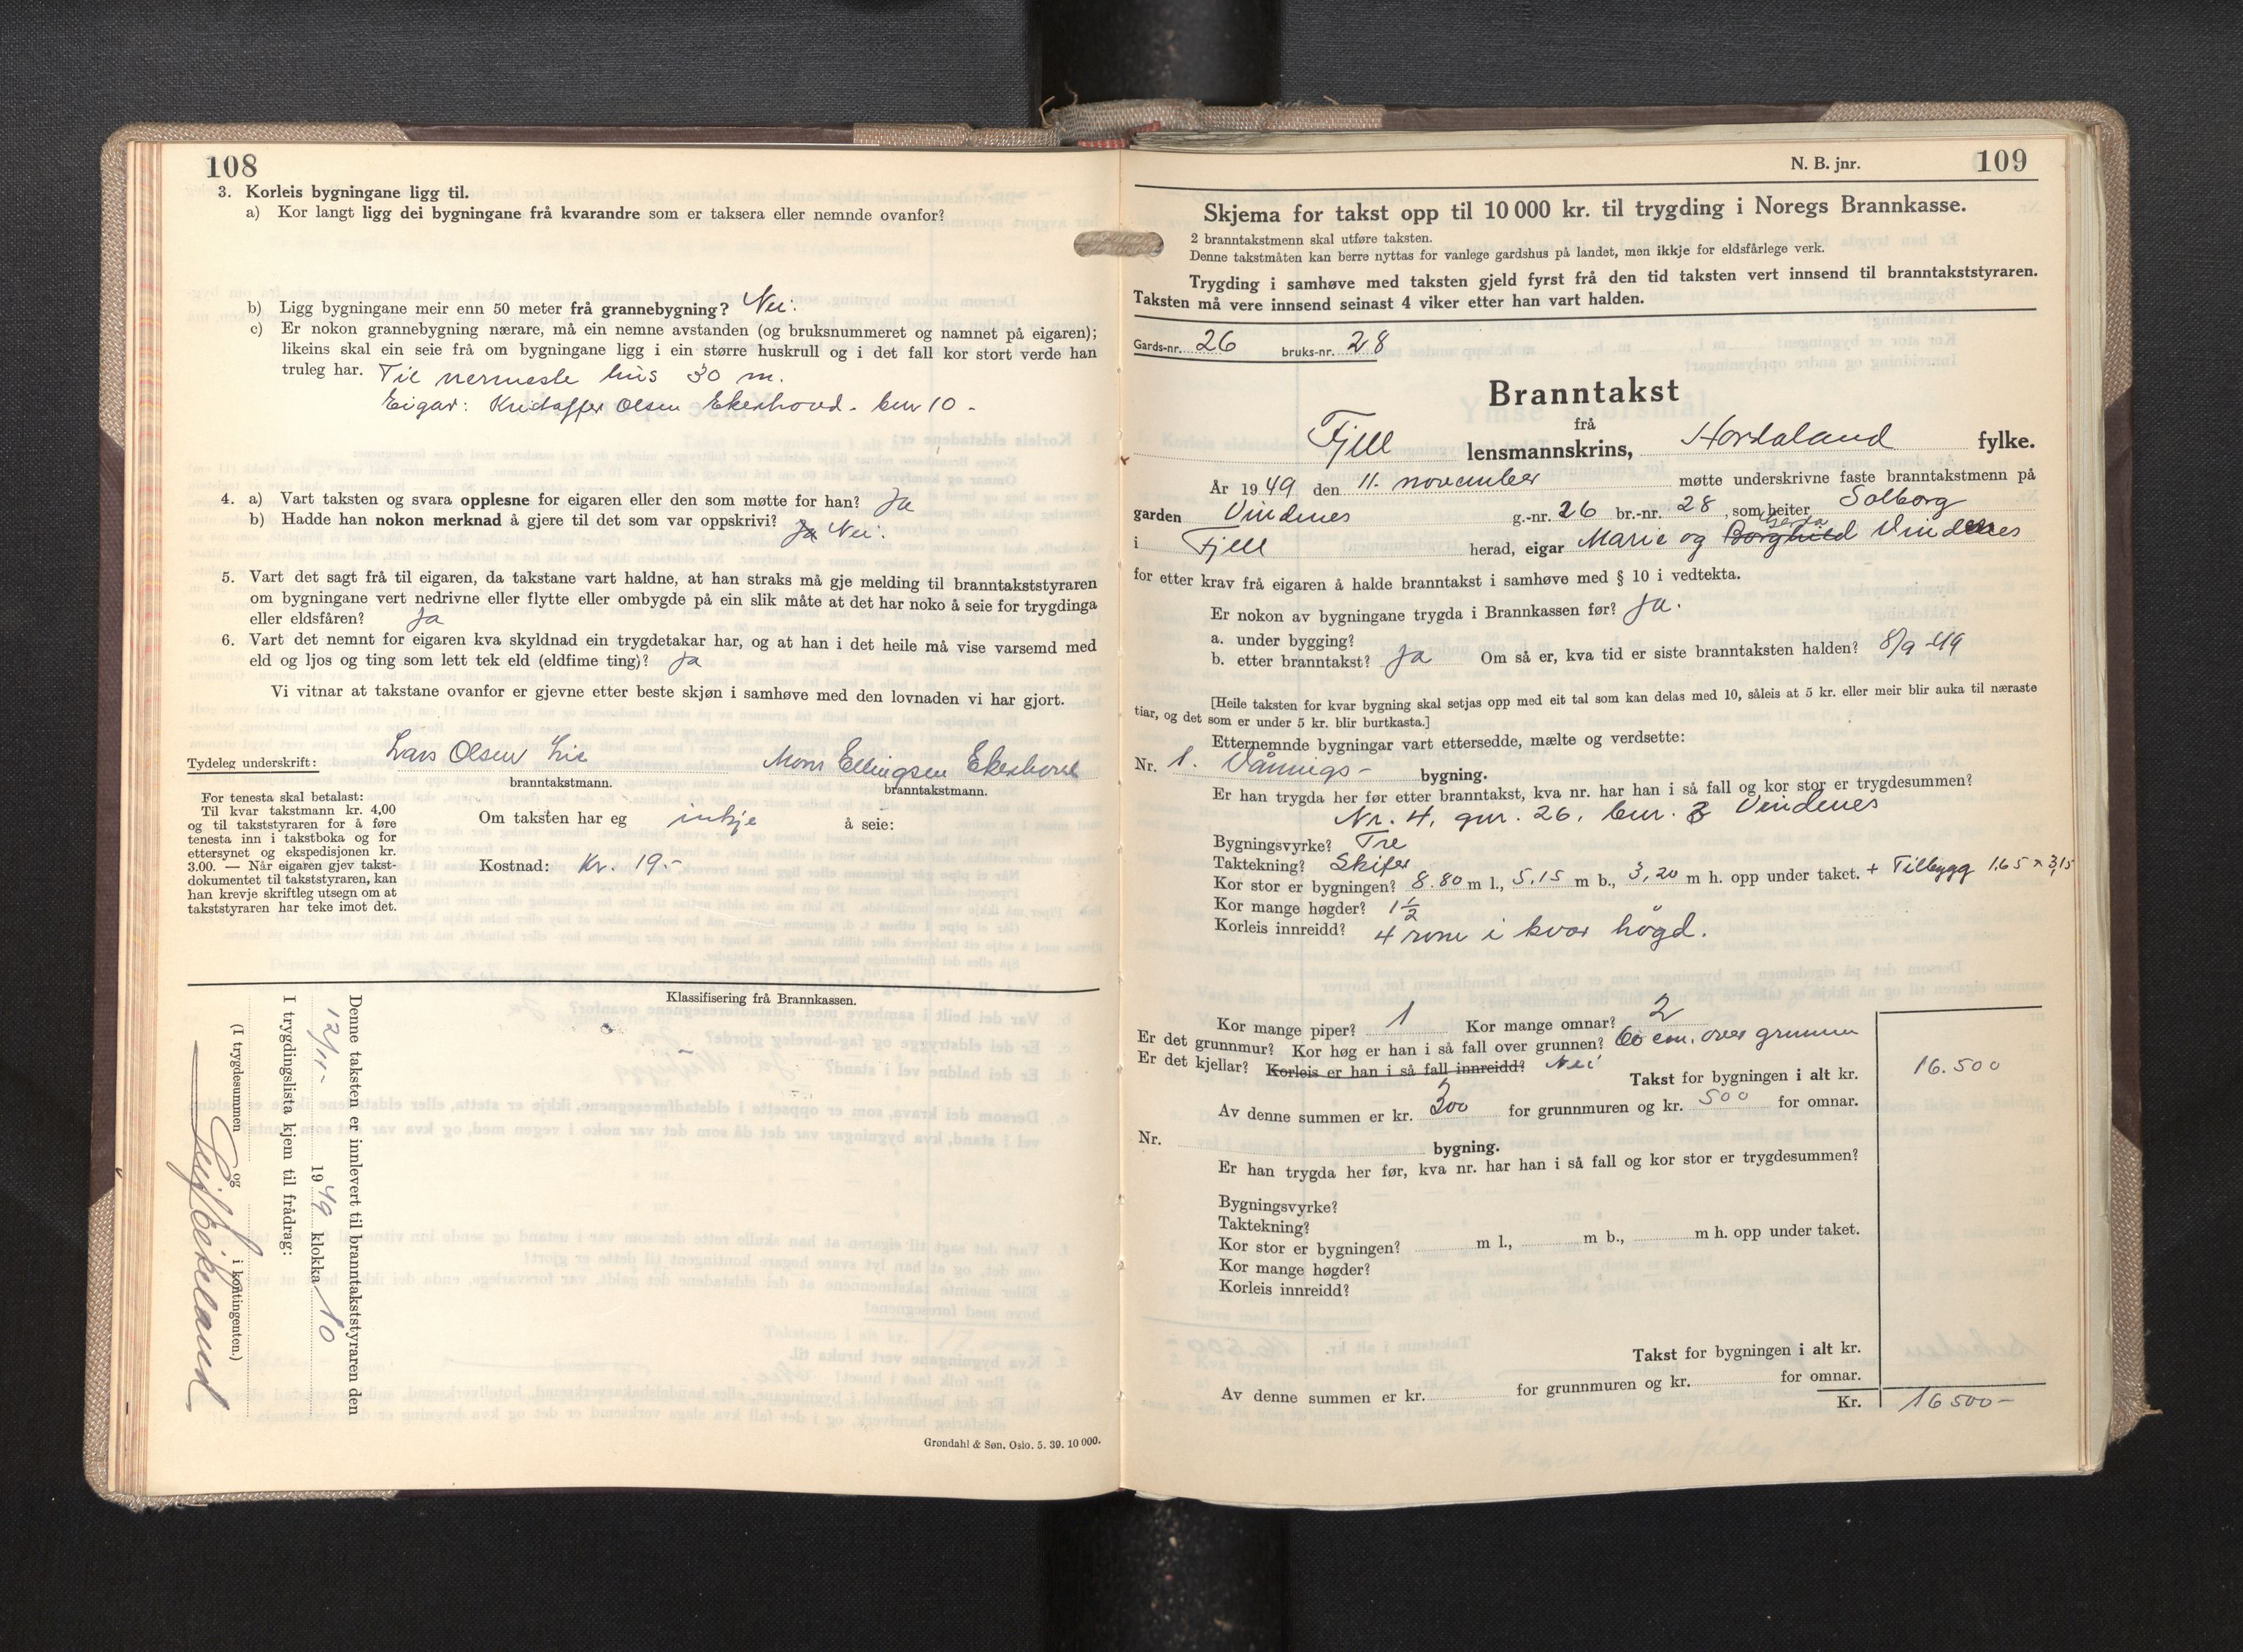 108
3. Korleis bygningane ligg til.
a) Kor langt ligg dei bygningane frå kvarandre som er taksera eller nemnde ovanfor?
b) Ligg bygningane meir enn 50 meter frå grannebygning? Nei.
c) Er nokon grannebygning nærare, må ein nemne avstanden (og bruksnummeret og namnet på eigaren);
likeins skal ein seie frå om bygningane ligg i ein større huskrull og i det fall kor stort verde han
truleg har. Til nermeste hus 30 m.
Eigar: Kristoffer Olsen Ekerhovd. bnr 10.
4. a) Vart taksten og svara opplesne for eigaren eller den som møtte for han? Ja
b) Hadde han nokon merknad å gjere til det som var oppskrivi? Ja Nei.
5. Vart det sagt frå til eigaren, da takstane vart haldne, at han straks må gje melding til branntakststyraren
om bygningane vert nedrivne eller flytte eller ombygde på ein slik måte at det har noko å seie for trygdinga
eller eldsfåren? Ja
6. Vart det nemnt for eigaren kva skyldnad ein trygdetakar har, og at han i det heile må vise varsemd med
eld og ljos og ting som lett tek eld (eldfime ting)? Ja
Vi vitnar at takstane ovanfor er gjevne etter beste skjøn i samhøve med den lovnaden vi har gjort.
Tydeleg underskrift: Lars Olsen Lie Mons Ellingsen Ekerhovd
branntakstmann. branntakstmann.
For tenesta skal betalast:
Til kvar takstmann kr. 4,00
og til takststyraren for å føre
tenesta inn i takstboka og for
ettersynet og ekspedisjonen kr.
3.00. — Når eigaren gjev takst-
dokumentet til takststyraren, kan
han krevje skriftleg utsegn om at
takststyraren har teke imot det.
Om taksten har eg inkje å seie:
Kostnad: Kr. 19.-
Klassifisering frå Brannkassen.
Denne taksten er innlevert til branntakststyraren den
12/11- 1949 klokka 10
I trygdingslista kjem til frådrag:
(I trygdesummen og i kontingenten.)
Grøndahl & Søn, Oslo. 5. 39. 10 000.
N. B. jnr. 109
Skjema for takst opp til 10 000 kr. til trygding i Noregs Brannkasse.
2 branntakstmenn skal utføre taksten.
Denne takstmåten kan berre nyttas for vanlege gardshus på landet, men ikkje for eldsfårlege verk.
Trygding i samhøve med taksten gjeld fyrst frå den tid taksten vert innsend til branntakststyraren.
Taksten må vere innsend seinast 4 viker etter han vart halden.
Gards-nr. 26 bruks-nr. 28
Branntakst
frå
Fjell lensmannskrins, Hordaland fylke.
År 1949 den 11. november møtte underskrivne faste branntakstmenn på
garden Vindenes g.-nr. 26 br.-nr. 28, som heiter Solborg
i Fjell herad, eigar Marie og Borghild Vindenes
for etter krav frå eigaren å halde branntakst i samhøve med § 10 i vedtekta.
Er nokon av bygningane trygda i Brannkassen før? Ja.
a. under bygging?
b. etter branntakst? Ja Om så er, kva tid er siste branntaksten halden? 8/9-49
[Heile taksten for kvar bygning skal setjas opp med eit tal som kan delas med 10, såleis at 5 kr. eller meir blir auka til næraste
tiar, og det som er under 5 kr. blir burtkasta.]
Etternemnde bygningar vart ettersedde, mælte og verdsette:
Nr. 1. Vånnigs- bygning.
Er han trygda her før etter branntakst, kva nr. har han i så fall og kor stor er trygdesummen?
Nr. 4, gnr. 26, bnr. 3 Vindenes
Bygningsvyrke? Tre
Taktekning? Skifer
Kor stor er bygningen? 8.80 m l., 5.15 m b., 3,20 m h. opp under taket. + Tilbygg 1.65 x 3,15
Kor mange høgder? 1 1/2
Korleis innreidd? 4 rom i kvar høgd.
Kor mange piper? 1 Kor mange omnar? 2
Er det grunnmur? Kor høg er han i så fall over grunnen? 60 cm. over grunnen
Er det kjellar? Korleis er han i så fall innreidd? Nei
Takst for bygningen i alt kr. 16.500
Av denne summen er kr. 300 for grunnmuren og kr. 500 for omnar.
Nr. bygning.
Er han trygda her før, kva nr. har han i så fall og kor stor er trygdesummen?
Bygningsvyrke?
Taktekning?
Kor stor er bygningen? m l., m b., m h. opp under taket.
Kor mange høgder?
Korleis innreidd?
Takst for bygningen i alt kr.
Av denne summen er kr. for grunnmuren og kr. for omnar.
Kr. 16500-